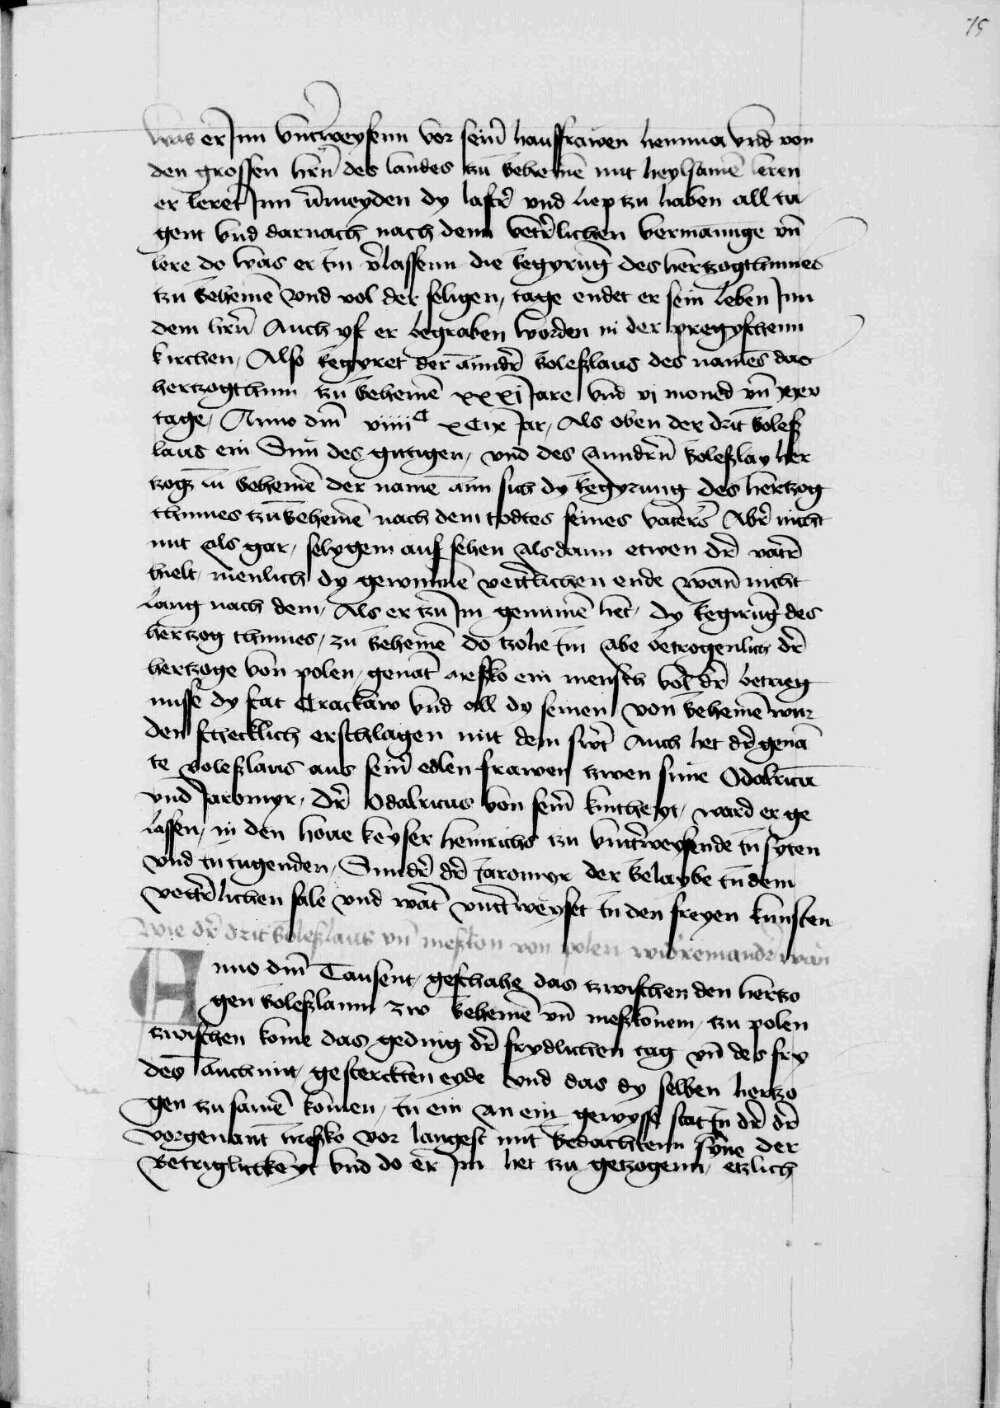 75
was er Jnn vnterweysenn vor seiner hausfrawen hemma vnd von
den grossen hrn̄ des landes zu behemē mit heylsamē leren
er leret Jnn v̄meyden dy laster vnd liep zu haben all tu
gent vnd darnach nach dem veterlichen vermanūge vn̄
lere do was er im v̄lassenn die Regyrūg des hertzogthumes
zu behemē vnd vol der seligen tage endet er sein leben Jnn
dem hrn̄ Auch ist er begraben worden in der pregyschenn
kirchen Also Regyret der annder boleslaus des names das
hertzogthum zu behemē xxxi Jare vnd vj moned vn̄ xxv
tage Anno dm̄ viiiiᶜ xcix Jar Als oben der drit boles
laus ein Sun des gutigen vnd des anndern boleslay her
tzog in behemē der name ann sich dy Regyrung des hertzog
thumes zu behemē nach dem todtes seines vaters Abr̄ nicht
mit als gar selygem auf sehen als dann etwen dr̄ vatr̄
hielt menlich dy gewūnnē veterlichen ende wan̄ nicht
lang nach dem Als er zu Jm genumē het dy Regirūg des
hertzog thumes zu behemē do zohe im abe betrogenlich dr̄
hertzoge von polen genāt mesko ein mensch vol dr̄ betrieg
nisse dy stat Crackaw vnd all dy seinen von behemē wur
den schecklich erschlagen mit dem swrt Auch het dr̄ genā
te boleslaus aus seinr edlen frawen zwen sune Odalricū
vnd Jaromyr dr̄ Odalricus von seinr kintheyt ward er ge
lassen in den houe keyser heinrichs zu vnterweysende in syten
vnd in tugenden Sundr̄ dr̄ Jaromyr der belaybe in dem
veterlichen sale vnd wart vnterweyset in den freyen kunsten
Wie dr̄ drit boleslaus vn̄ meskon von polen widr̄einander warn
Anno dm̄ Tausent geschahe das zwischen den hertzo
gen boleslaum zw behemē vn̄ meskonem zu polen
zwischen kome das geding dr̄ frydlichen tag vn̄ des fry
des auch mit gesterckten eyde vnd das dy selben hertzo
gen zu samē komen in ein an ein gewysse stat In dr̄ dr̄
vorgenant mesko vor langest mit bedachtem syne der
Betriglickeyt vnd do er Jm het zu getzogenn etzlich